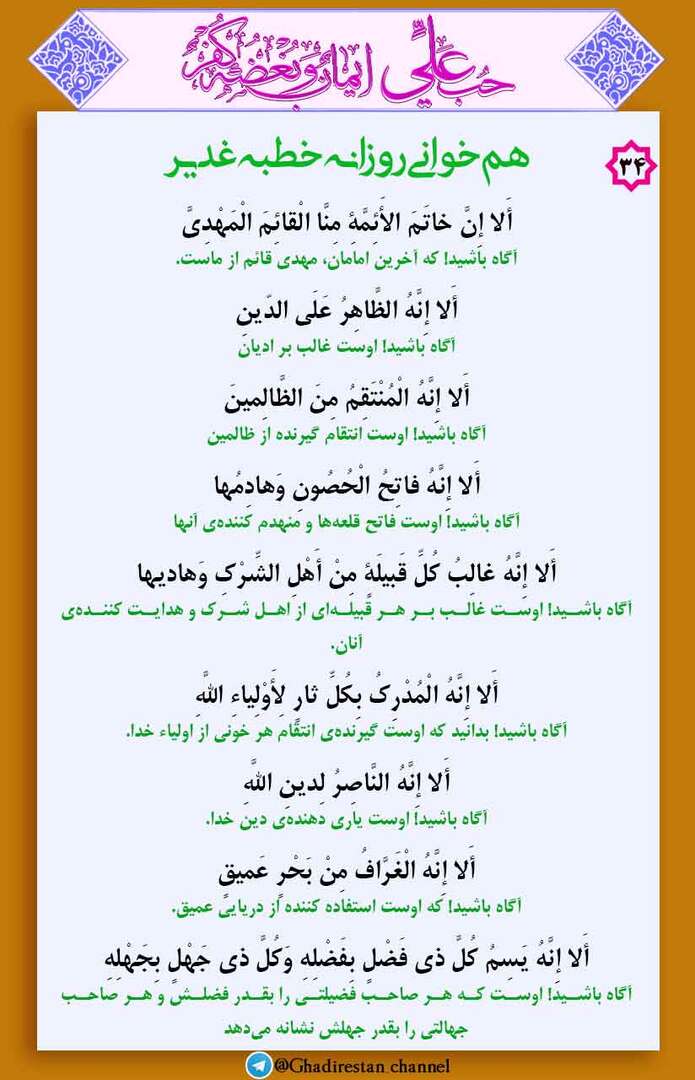 حب علي ايمان وبغضه كفر
هم‌خوانی روزانه خطبه غدیر
۳۴
أَلا إِنَّ خاتَمَ الأَئِمَّةِ مِنَّا الْقائِمَ الْمَهْدِىَّ
آگاه باشید! که آخرین امامان، مهدی قائم از ماست.
أَلا إِنَّهُ الظَّاهِرُ عَلَى الدّينِ
آگاه باشید! اوست غالب بر ادیان
أَلا إِنَّهُ الْمُنْتَقِمُ مِنَ الظَّالِمينَ
آگاه باشید! اوست انتقام گیرنده از ظالمین
أَلا إِنَّهُ فاتِحُ الْحُصُونِ وَهادِمُها
آگاه باشید! اوست فاتح قلعه‌ها و منهدم کننده‌ی آنها
أَلا إِنَّهُ غالِبُ كُلِّ قَبيلَةٍ مِنْ أَهْلِ الشِّرْكِ وَهاديها
آگاه باشید! اوست غالب بر هر قبیله‌ای از اهل شرک و هدایت کننده‌ی
آنان.
أَلا إِنَّهُ الْمُدْرِكُ بِكُلِّ ثارٍ لِأَوْلِياءِ اللَّهِ
آگاه باشید! بدانید که اوست گیرنده‌ی انتقام هر خونی از اولیاء خدا.
أَلا إِنَّهُ النَّاصِرُ لِدينِ اللَّهِ
آگاه باشید! اوست یاری دهنده‌ی دین خدا.
أَلا إِنَّهُ الْغَرَّافُ مِنْ بَحْرٍ عَميقٍ
آگاه باشید! که اوست استفاده کننده از دریایی عمیق.
أَلا إِنَّهُ يَسِمُ كُلَّ ذى فَضْلٍ بِفَضْلِهِ وَكُلَّ ذى جَهْلٍ بِجَهْلِهِ
آگاه باشید! اوست که هر صاحب فضیلتی را بقدر فضلش و هر صاحب
جهالتی را بقدر جهلش نشانه می‌دهد
@Ghadirestan_channel